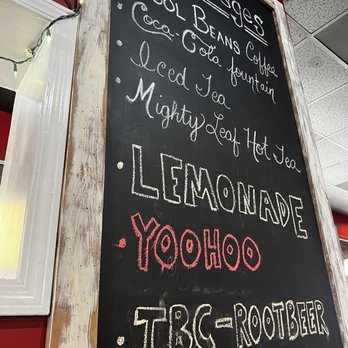 OOL BEANS Coffee
Coca-Cola fountain
Iced Tea
Mighty Leaf Hot Tea
LEMONADE
YOOHOO
TBC-ROOTBEER